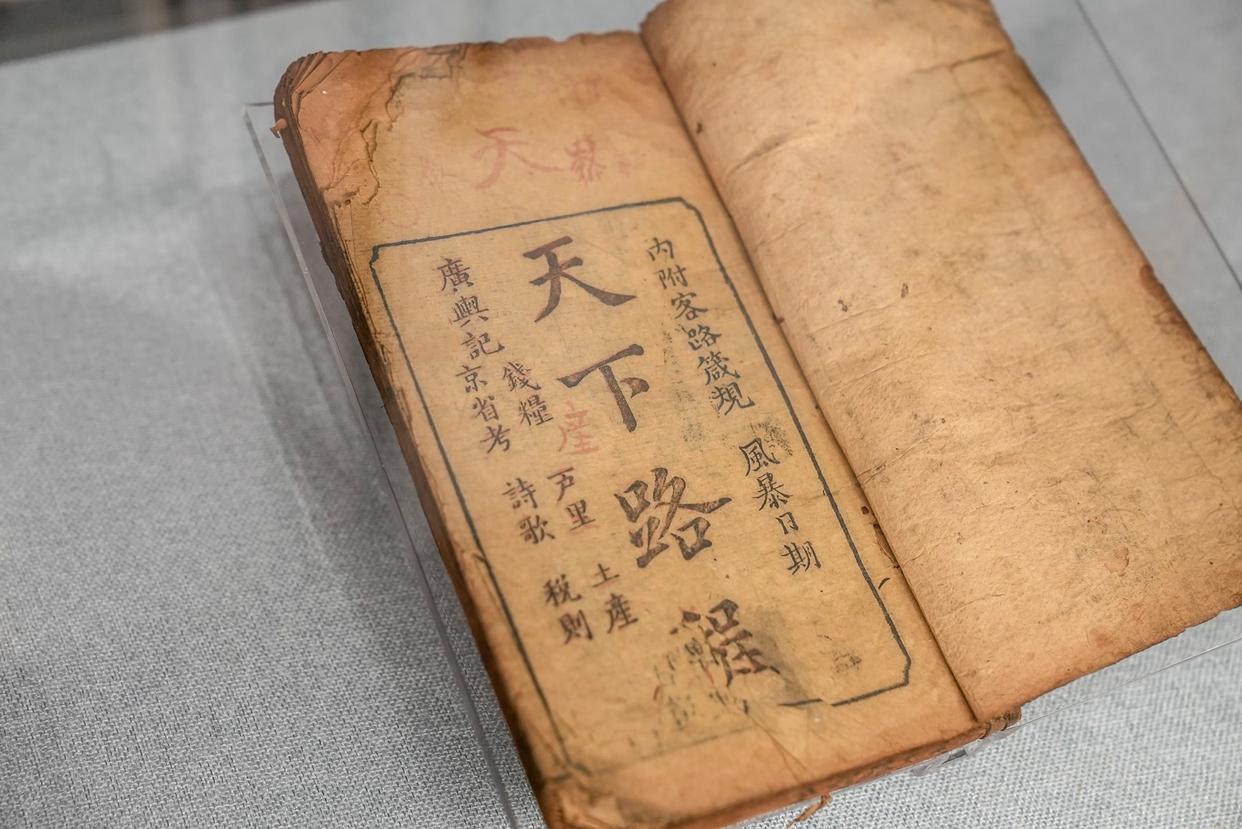 內附客路箴規 風暴日期
天下路程
錢糧 戸里 土產
廣輿記京省考 詩歌 税則
天
產